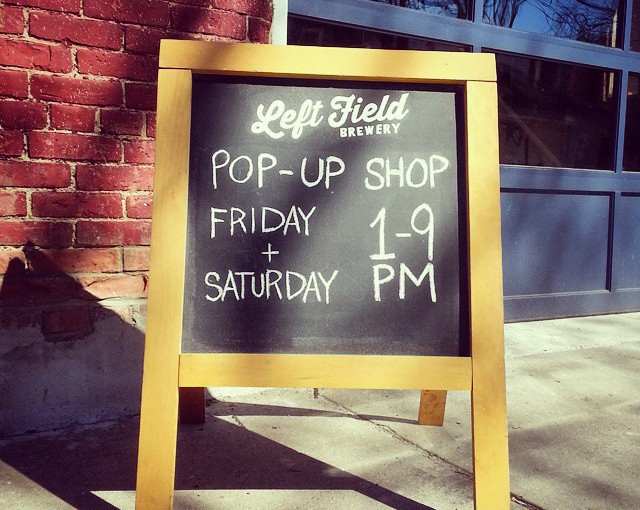 Left Field
BREWERY
POP-UP SHOP
FRIDAY
+
SATURDAY
1-9
PM